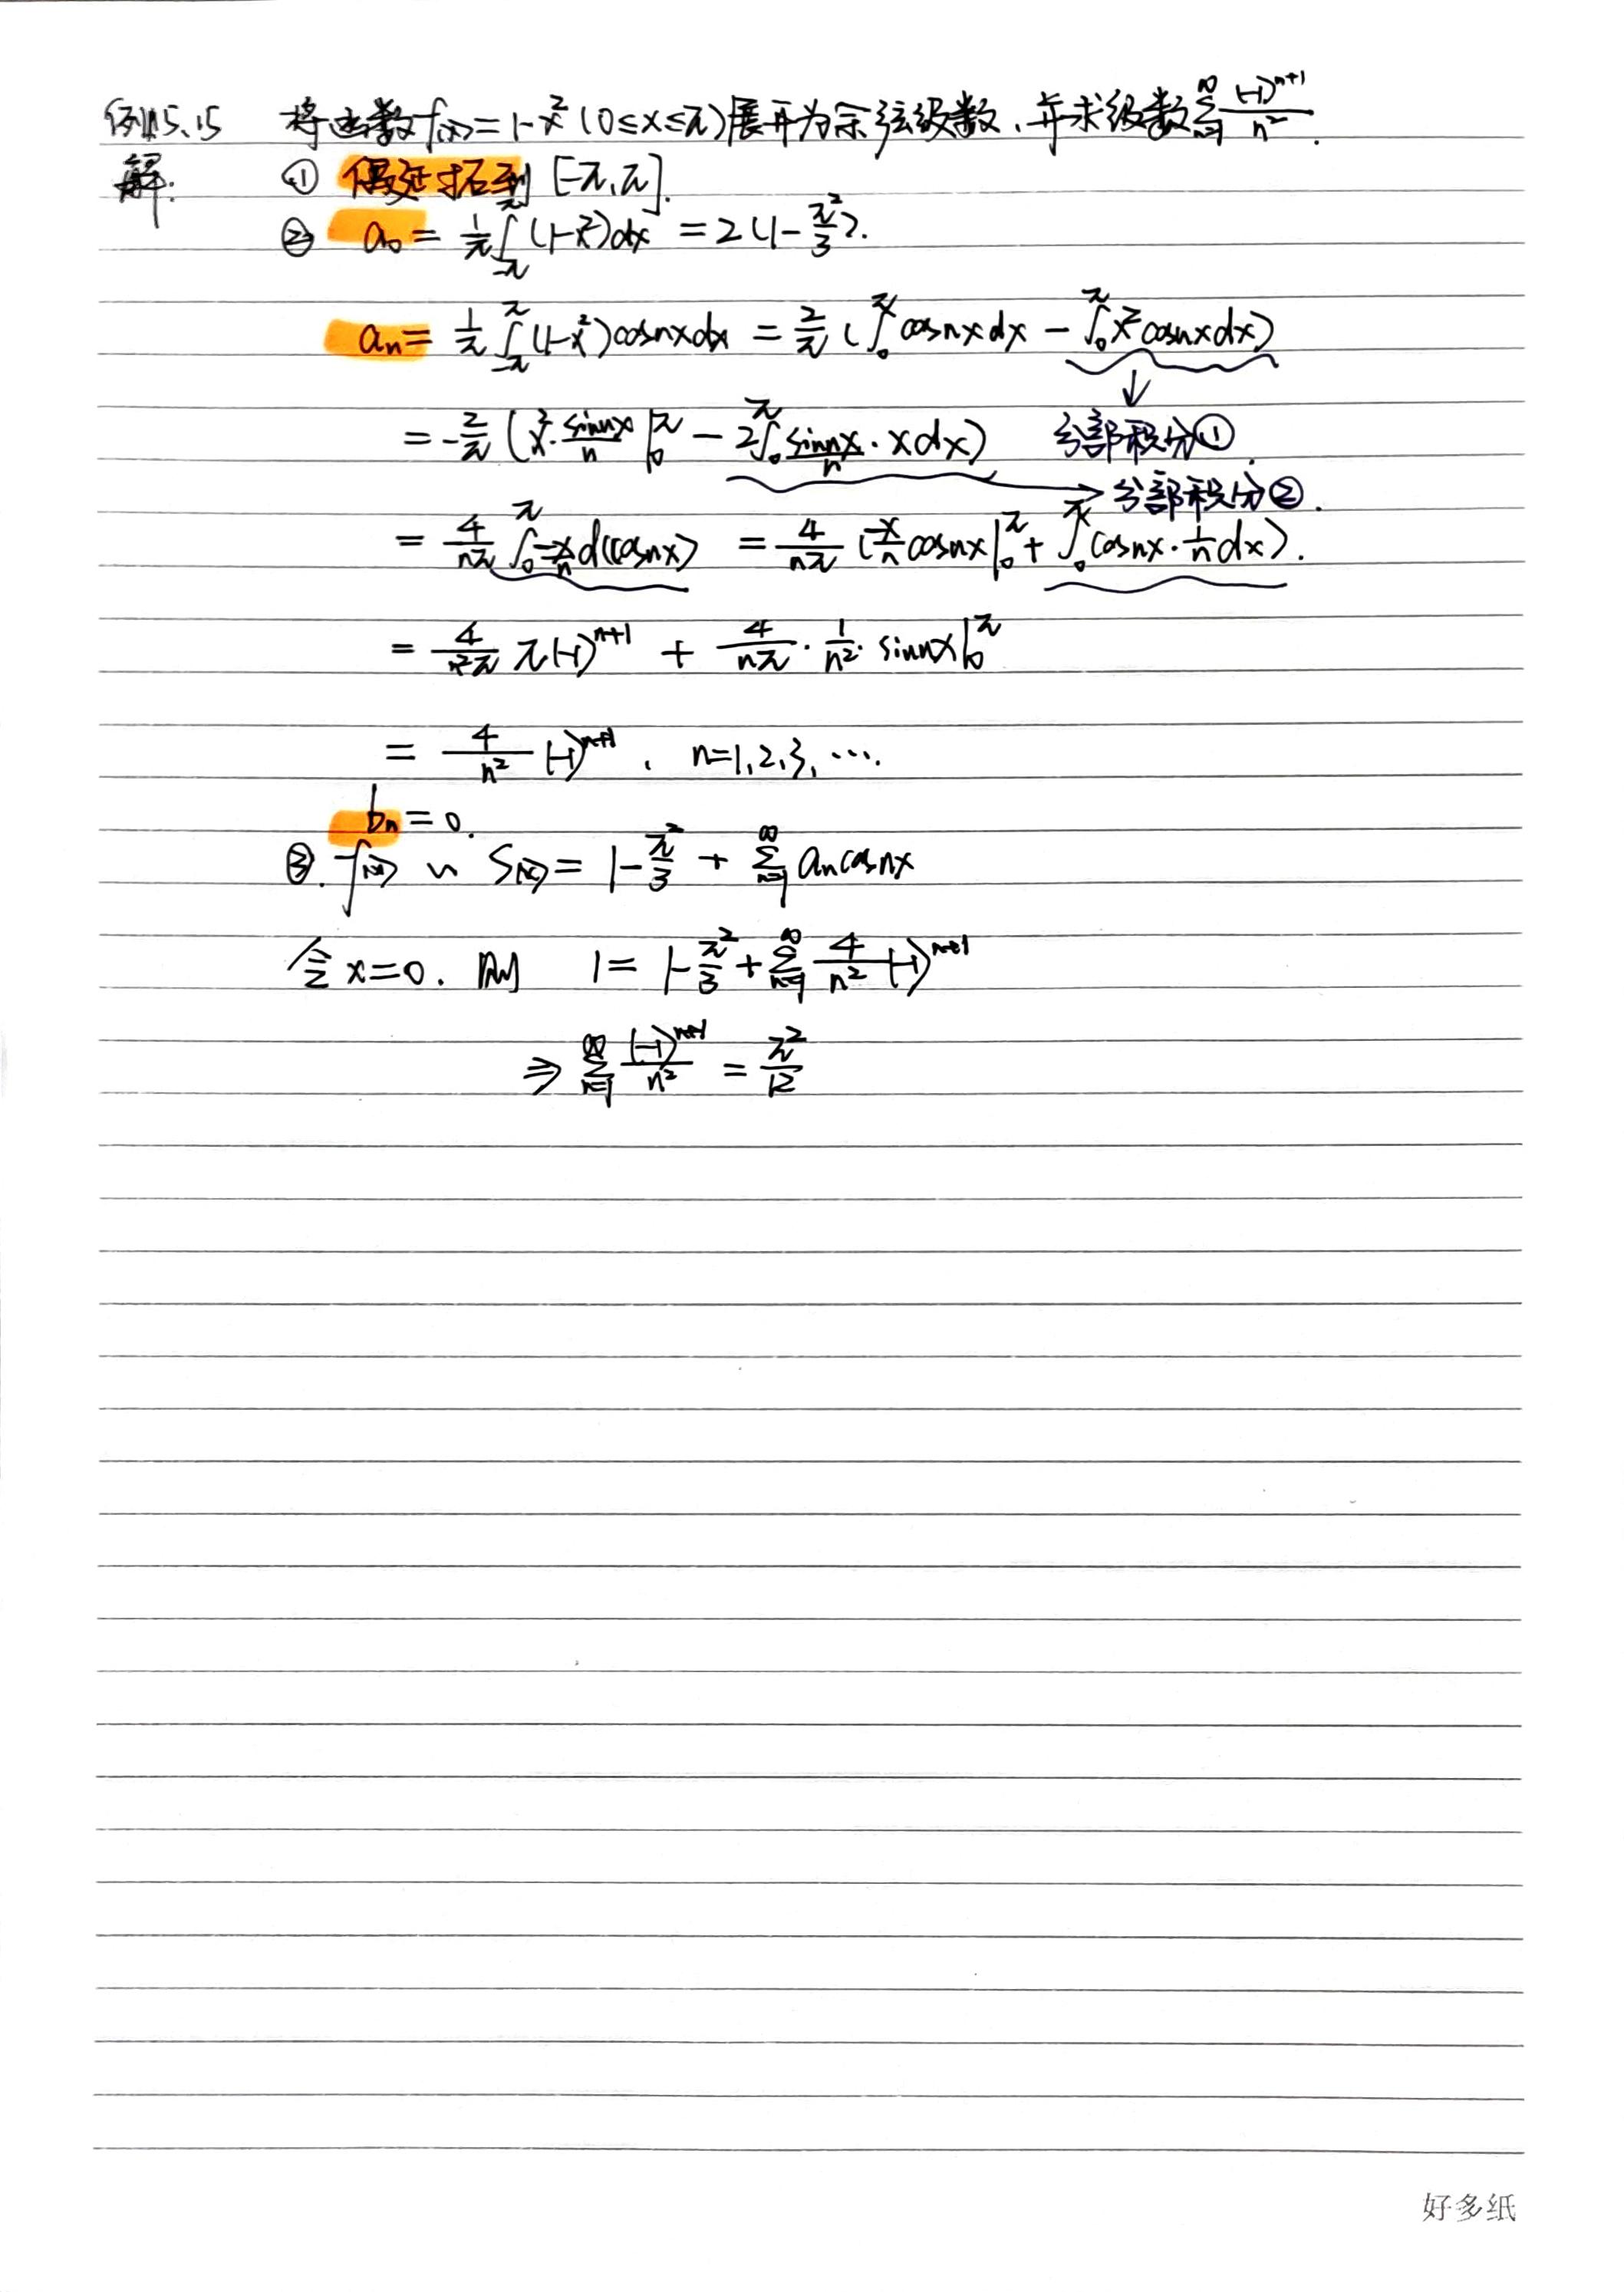 例15.15 将函数f(x)=1-x²(0≤x≤π)展开为余弦级数,并求级数∑_{n=1}^{∞} (-1)^{n+1}/n².
解. ① 偶延拓到[-π,π].
② a₀ = 1/π ∫_{-π}^{π} (1-x²)dx = 2(1-π²/3).
aₙ = 1/π ∫_{-π}^{π} (1-x²)cosnxdx = 2/π (∫_0^π cosnxdx - ∫_0^π x²cosnxdx)
↓
= -2/π (x²·sinnx/n |_0^π - 2∫_0^π sinnx/n · xdx) 分部积分①.
→ 分部积分②.
= 4/(nπ) ∫_0^π -x/n d(cosnx) = 4/(nπ) (-x/n cosnx|_0^π + ∫_0^π cosnx·1/n dx).
= 4/(n²π) π(-1)^{n+1} + 4/(nπ) · 1/n² · sinnx|_0^π
= 4/n² (-1)^{n+1}, n=1,2,3,…
bₙ = 0.
③. f(x) ~ S(x) = 1-π²/3 + ∑_{n=1}^{∞} aₙcosnx
令x=0. 则 1 = 1-π²/3 + ∑_{n=1}^{∞} 4/n² (-1)^{n+1}
⇒ ∑_{n=1}^{∞} (-1)^{n+1}/n² = π²/12
好多纸